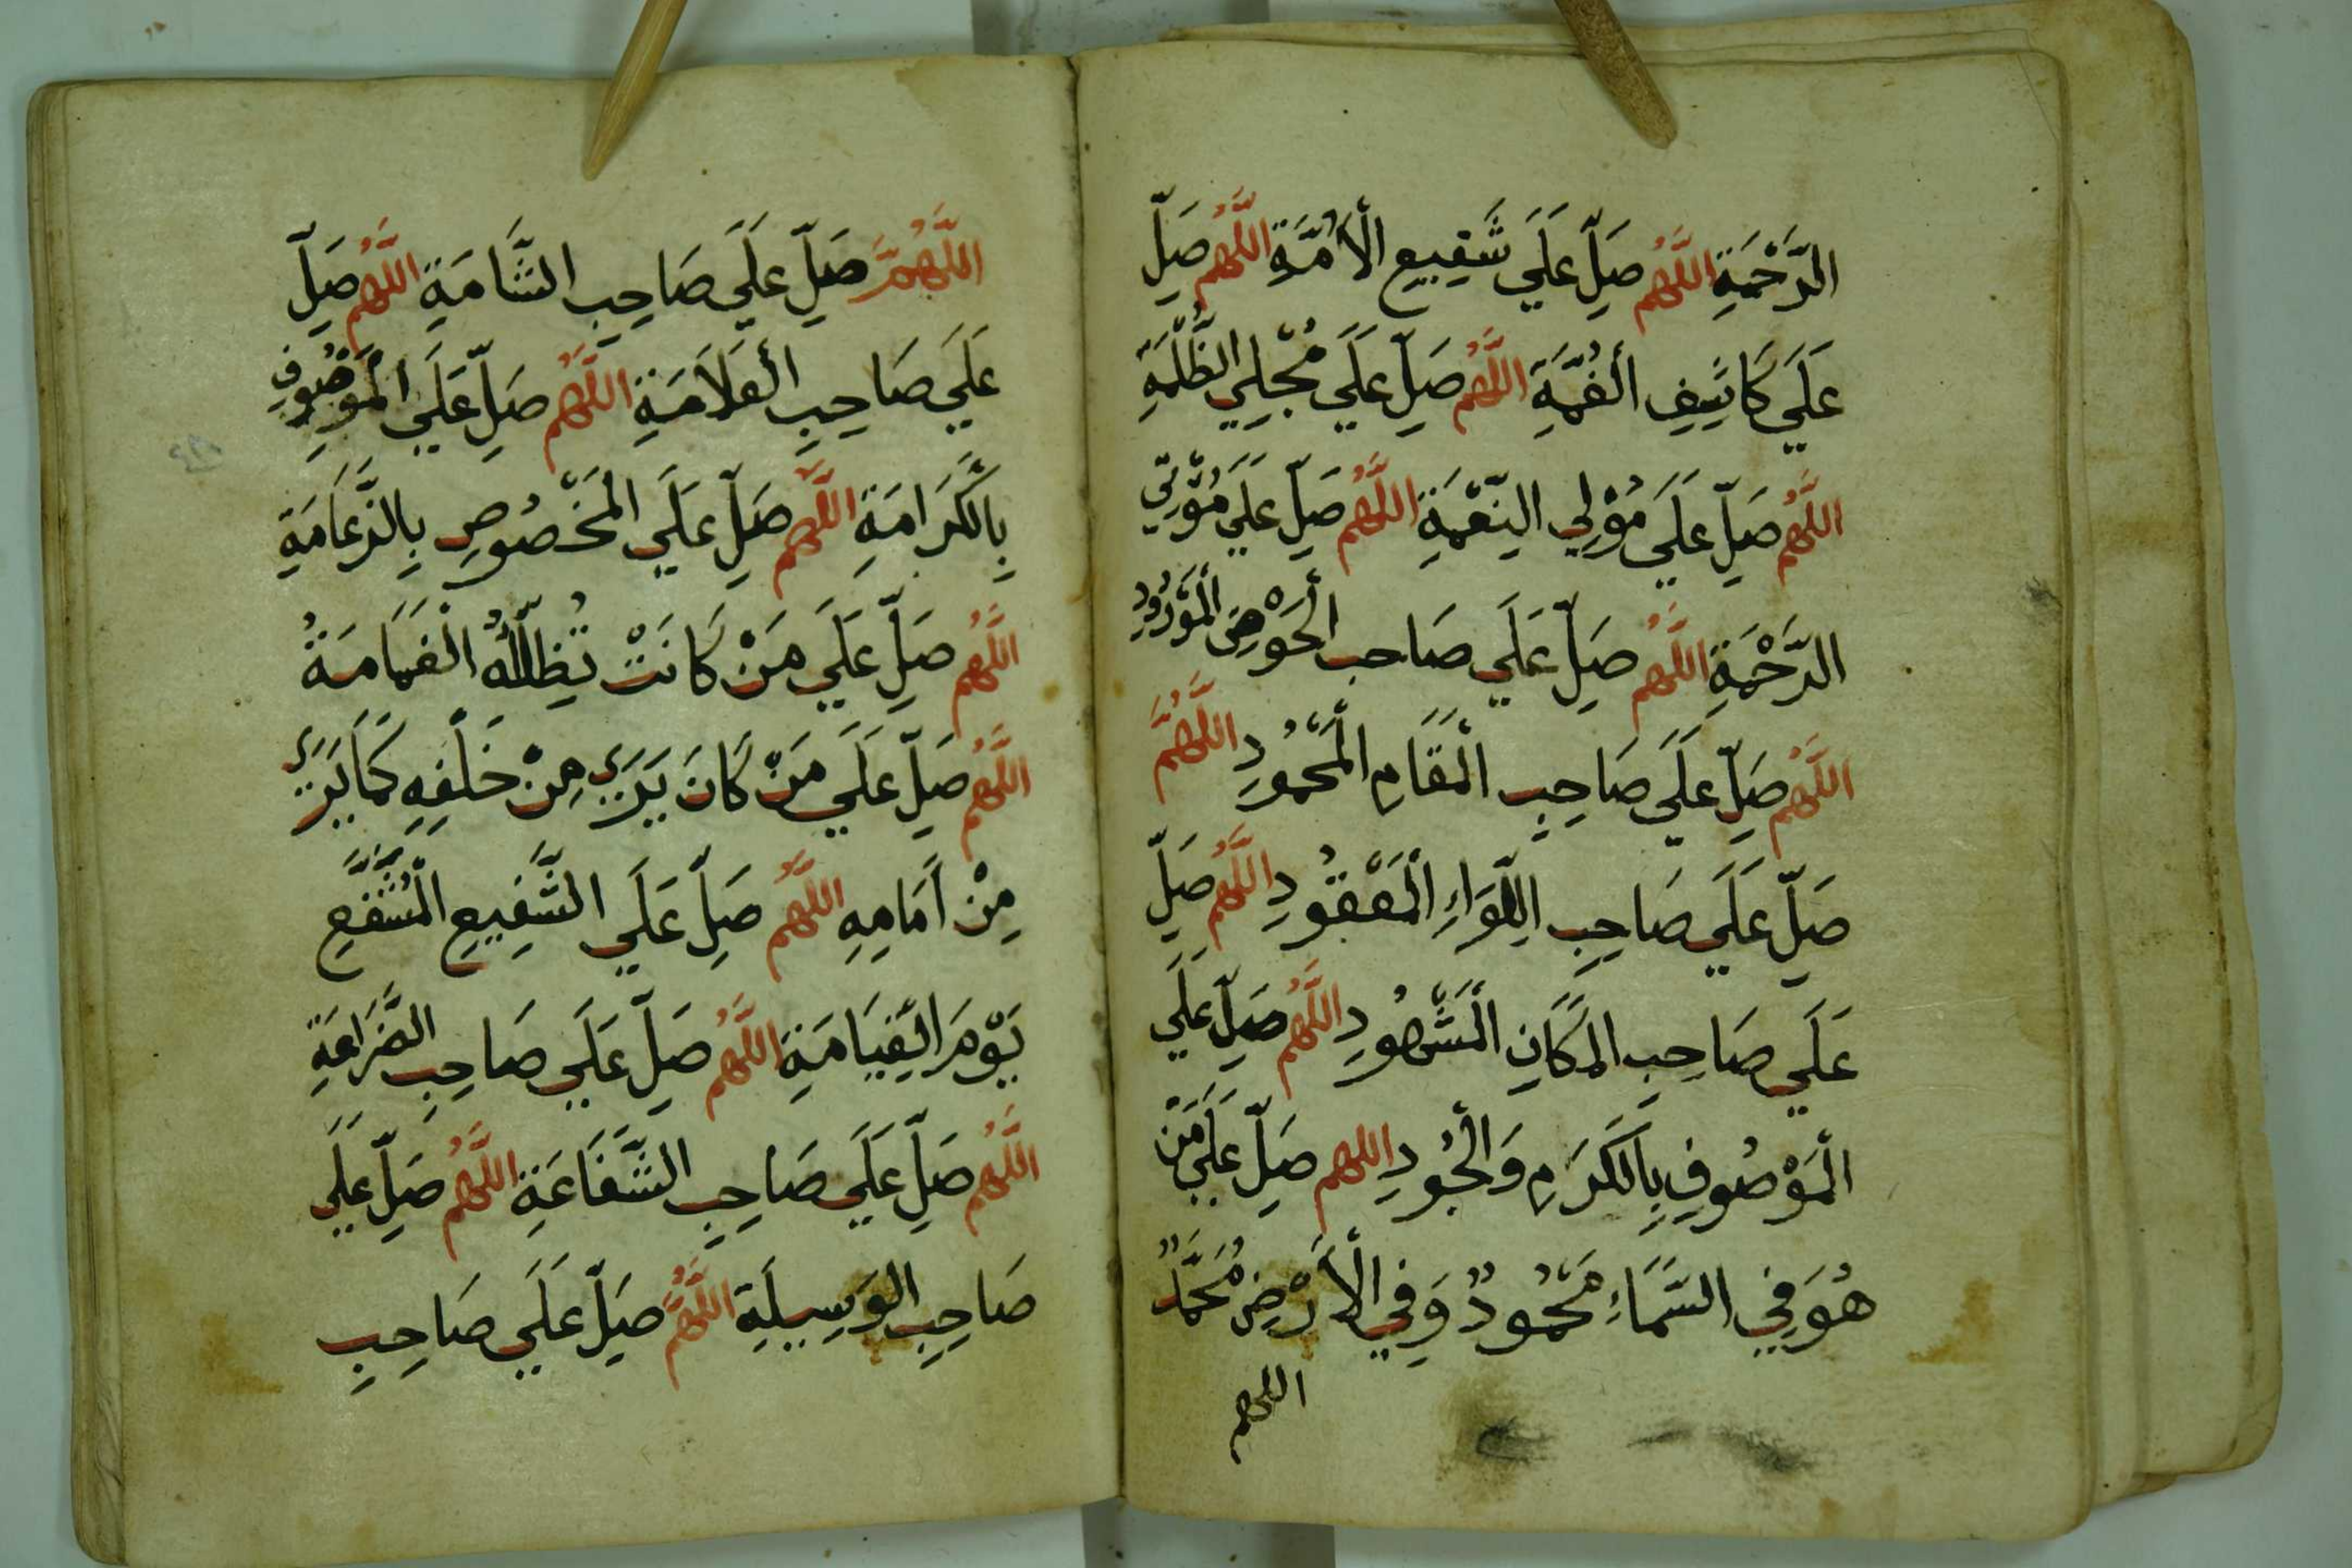 الرَّحْمَةِ اللَّهُم صَلِّ عَلَي شَفِيعِ الْأُمَّةِ اللَّهُم صَلِّ
عَلَي كَاشِفِ الْغُمَّةِ اللَّهُم صَلِّ عَلَي مُجْلِي الظُّلْمَةِ
اللَّهُم صَلِّ عَلَي مُوْلِي النِّعْمَةِ اللَّهُم صَلِّ عَلَي مُؤْتِي
الرَّحْمَةِ اللَّهُم صَلِّ عَلَي صَاحب الْحَوْضِ الْمَوْرُودِ
اللَّهُم صَلِّ عَلَي صَاحِبِ الْمَقَامِ الْمَحْمُودِ اللَّهُمَّ
صَلِّ عَلَي صَاحِبِ اللِّوَاءِ الْمَعْقُودِ اللَّهُم صَلِّ
عَلَي صَاحِبِ المَكَانِ الْمَشْهُودِ اللَّهُم صَلِّ عَلَي
الْمَوْصُوفِ بِالْكَرَمِ وَالْجُودِ اللهم صَلِّ عَلَي مَنْ
هُوَ فِي السَّمَاءِ مَحْمُودٌ وَفِي الْأَرْضِ مُحَمَّدٌ
اللهم
اللَّهُمَّ صَلِّ عَلَي صَاحِبِ الشَّامَةِ اللَّهُم صَلِّ
عَلَي صَاحِبِ الْعَلَامَةِ اللَّهُم صَلِّ عَلَي الْمَوْصُوفِ
بِالْكَرَامَةِ اللَّهُم صَلِّ عَلَي الْمَخْصُوصِ بِالزَّعَامَةِ
اللَّهُم صَلِّ عَلَي مَنْ كَانَتْ تُظِلُّهُ الْغَمَامَةُ
اللَّهُم صَلِّ عَلَي مَنْ كَانَ يَرَي مِنْ خَلْفِهِ كَمَا يَرَي
مِنْ اَمَامِهِ اللَّهُم صَلِّ عَلَي الشَّفِيعِ الْمُشَفَّعِ
يَوْمَ الْقِيَامَةِ اللَّهُم صَلِّ عَلَي صَاحِبِ الضَّرَاعَةِ
اللَّهُم صَلِّ عَلَي صَاحِبِ الشَّفَاعَةِ اللَّهُم صَلِّ عَلَي
صَاحِبِ الوَسِيلَةِ اللَّهُم صَلِّ عَلَي صَاحِبِ